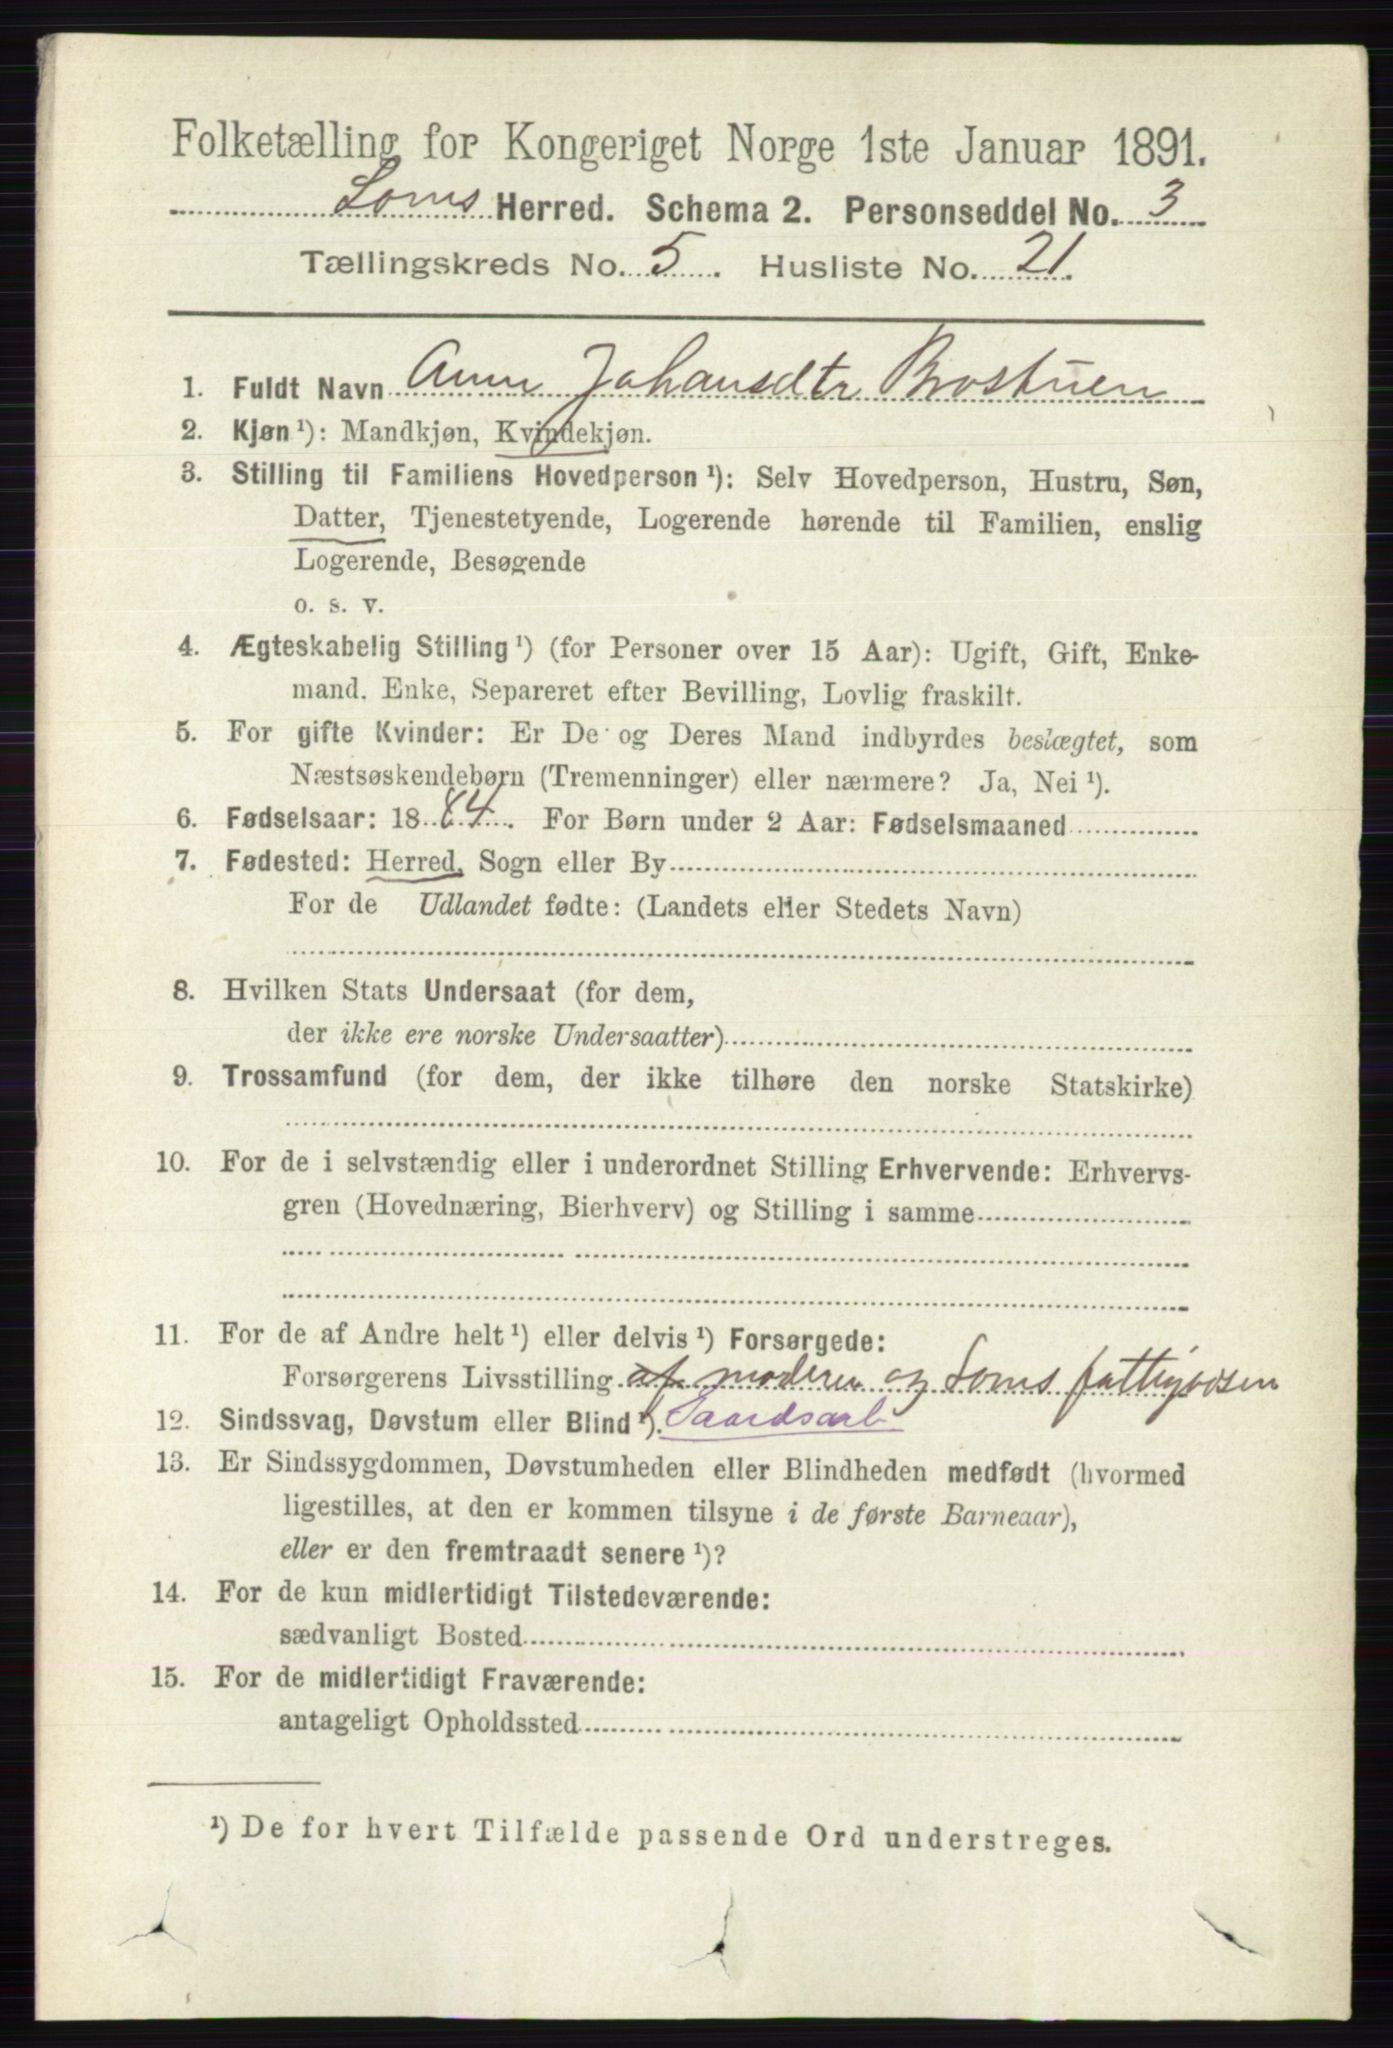 Folketælling for Kongeriget Norge 1ste Januar 1891.
Loms Herred. Schema 2. Personseddel No. 3
Tællingskreds No. 5. Husliste No. 21.
1. Fuldt Navn Anne Johansdtr Brostuen
2. Kjøn ¹): Mandkjøn, Kvindekjøn.
3. Stilling til Familiens Hovedperson ¹): Selv Hovedperson, Hustru, Søn,
Datter, Tjenestetyende, Logerende hørende til Familien, enslig
Logerende, Besøgende
o. s. v.
4. Ægteskabelig Stilling ¹) (for Personer over 15 Aar): Ugift, Gift, Enke-
mand, Enke, Separeret efter Bevilling, Lovlig fraskilt.
5. For gifte Kvinder: Er De og Deres Mand indbyrdes beslægtet, som
Næstsøskendebørn (Tremenninger) eller nærmere? Ja, Nei ¹).
6. Fødselsaar: 1884. For Børn under 2 Aar: Fødselsmaaned
7. Fødested: Herred, Sogn eller By
For de Udlandet fødte: (Landets eller Stedets Navn)
8. Hvilken Stats Undersaat (for dem,
der ikke ere norske Undersaatter)
9. Trossamfund (for dem, der ikke tilhøre den norske Statskirke)
10. For de i selvstændig eller i underordnet Stilling Erhvervende: Erhvervs-
gren (Hovednæring, Bierhverv) og Stilling i samme
11. For de af Andre helt ¹) eller delvis ¹) Forsørgede:
Forsørgerens Livsstilling af moderen og Loms
12. Sindssvag, Døvstum eller Blind ¹).
13. Er Sindssygdommen, Døvstumheden eller Blindheden medfødt (hvormed
ligestilles, at den er kommen tilsyne i de første Barneaar),
eller er den fremtraadt senere ¹)?
14. For de kun midlertidigt Tilstedeværende:
sædvanligt Bosted
15. For de midlertidigt Fraværende:
antageligt Opholdssted
¹) De for hvert Tilfælde passende Ord understreges.